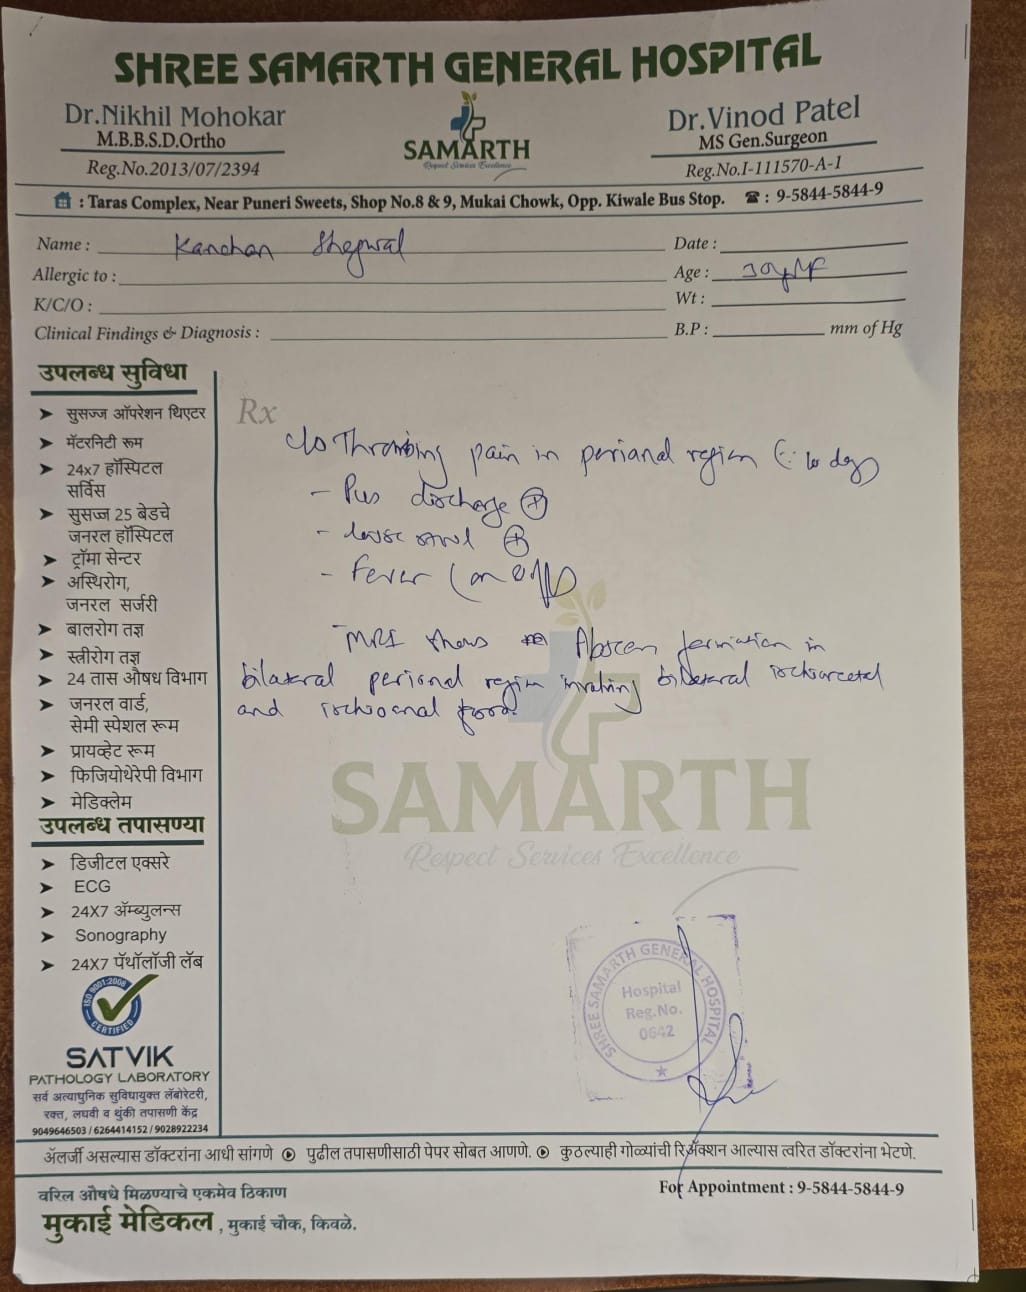 SHREE SAMARTH GENERAL HOSPITAL
Dr.Nikhil Mohokar
M.B.B.S.D.Ortho
Reg.No.2013/07/2394
SAMARTH
Respect Services Excellence
Dr.Vinod Patel
MS Gen.Surgeon
Reg.No.I-111570-A-1
: Taras Complex, Near Puneri Sweets, Shop No.8 & 9, Mukai Chowk, Opp. Kiwale Bus Stop. ☎ : 9-5844-5844-9
Name : Kanchan
Date :
Allergic to :
Age : 30y/F
K/C/O :
Wt :
Clinical Findings & Diagnosis :
B.P : mm of Hg
उपलब्ध सुविधा
➤ सुसज्ज ऑपरेशन थिएटर
➤ मॅटरनिटी रूम
➤ 24x7 हॉस्पिटल
सर्विस
➤ सुसज्ज 25 बेडचे
जनरल हॉस्पिटल
➤ ट्रॉमा सेन्टर
➤ अस्थिरोग,
जनरल सर्जरी
➤ बालरोग तज्ञ
➤ स्त्रीरोग तज्ञ
➤ 24 तास औषध विभाग
➤ जनरल वार्ड,
सेमी स्पेशल रूम
➤ प्रायव्हेट रूम
➤ फिजियोथेरेपी विभाग
➤ मेडिक्लेम
उपलब्ध तपासण्या
➤ डिजीटल एक्सरे
➤ ECG
➤ 24X7 ॲम्ब्युलन्स
➤ Sonography
➤ 24X7 पॅथॉलॉजी लॅब
ISO 9001:2008
CERTIFIED
SATVIK
PATHOLOGY LABORATORY
सर्व अत्याधुनिक सुविधायुक्त लॅबोरेटरी,
रक्त, लघवी व थुंकी तपासणी केंद्र
9049646503 / 6264414152 / 9028922234
Rx
c/o pain in perianal region
- Pus discharge ⊕
- loose stool ⊕
- Fever (on & off)
MRI shows Abscess formation in
bilateral perianal region involving bilateral ischiorectal
and ischioanal
SAMARTH
Respect Services Excellence
SHREE SAMARTH GENERAL HOSPITAL
Hospital
Reg.No.
0642
ॲलर्जी असल्यास डॉक्टरांना आधी सांगणे ⊙ पुढील तपासणीसाठी पेपर सोबत आणणे. ⊙ कुठल्याही गोळ्यांची रिॲक्शन आल्यास त्वरित डॉक्टरांना भेटणे.
वरिल औषधे मिळण्याचे एकमेव ठिकाण
For Appointment : 9-5844-5844-9
मुकाई मेडिकल , मुकाई चौक, किवळे.